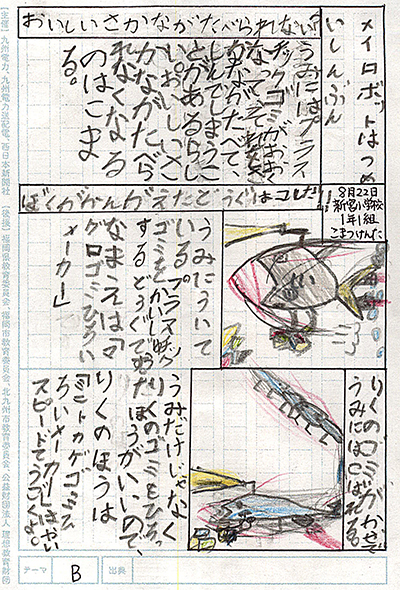 メイロボットはつめ
いしんぶん
8月22日
新宮小学校
1年1組
こまつけんた
おいしいさかながたべられない?
うみにはプラス
チックゴミがおおく
なってそ
さかながたべて、
しんでしまうこ
とがあるらし
い。おいしいさ
かながたべら
れなくなる
のはこま
る。
ぼくがかんがえたどうぐはコレだ!!
うみにういて
いるプラスチック
ゴミを
するどうぐで
なまえは「マ
グロゴミひろい
メーカー」
りくのゴミがかぜで
うみにはこばれる。
うみだけじゃなく
りくのゴミをひろっ
たほうがいいので、
りくのほうは
「ミニトカゲゴミひ
ろいメーカー」はやい
スピードでうごくよ。
テーマ
B
出典
【主催】九州電力、九州電力送配電、西日本新聞社 【後援】福岡県教育委員会、福岡市教育委員会、北九州市教育委員会、公益財団法人 理想教育財団